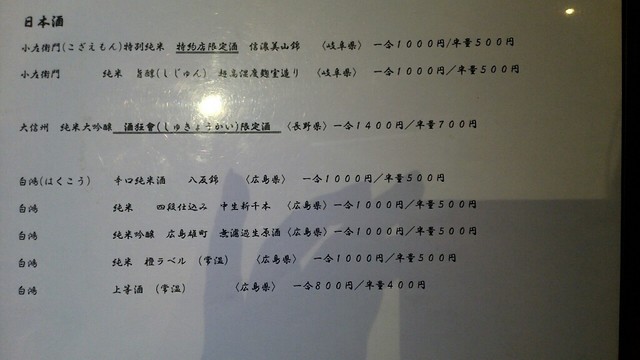 日本酒
小左衛門(こざえもん)特別純米 特約店限定酒 信濃美山錦 〈岐阜県〉 一合1000円/半量500円
小左衛門 純米 旨醇(しじゅん) 超高湿度麹室造り 〈岐阜県〉 一合1000円/半量500円
大信州 純米大吟醸 酒狂會(しゅきょうかい)限定酒 〈長野県〉一合1400円/半量700円
白鴻(はくこう) 辛口純米酒 八反錦 〈広島県〉 一合1000円/半量500円
白鴻 純米 四段仕込み 中生新千本 〈広島県〉一合1000円/半量500円
白鴻 純米吟醸 広島雄町 無濾過生原酒〈広島県〉一合1000円/半量500円
白鴻 純米 橙ラベル (常温) 〈広島県〉 一合1000円/半量500円
白鴻 上等酒 (常温) 〈広島県〉 一合800円/半量400円